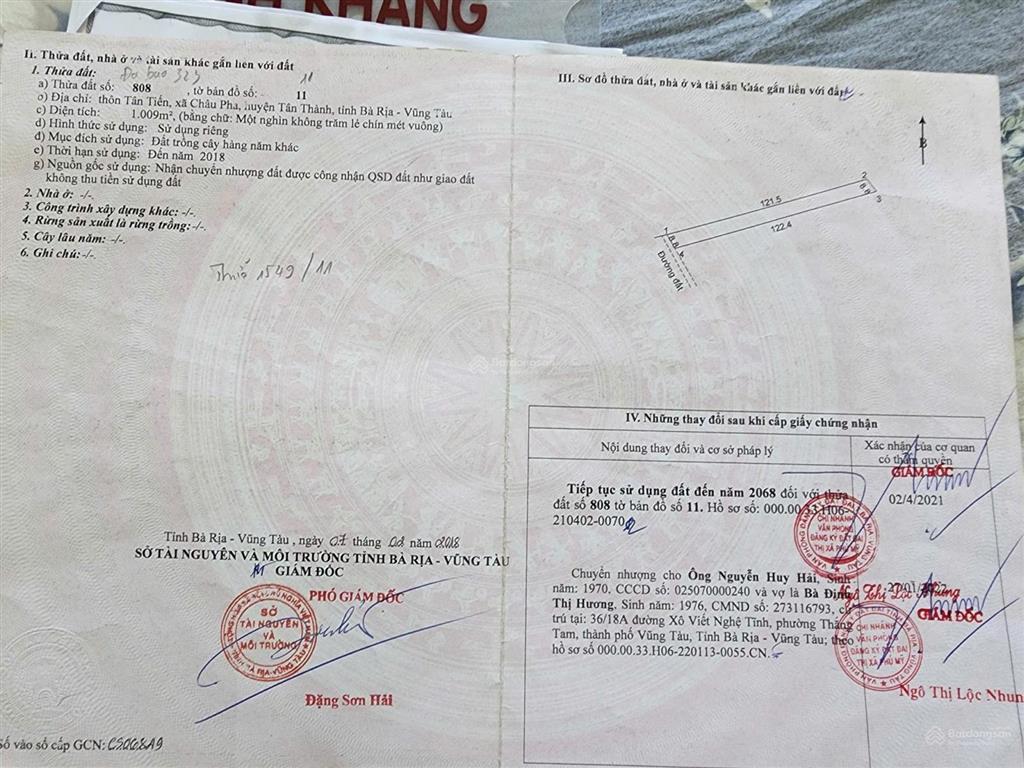 H KHANG
II. Thửa đất, nhà ở và tài sản khác gắn liền với đất
1. Thửa đất: Đo bao 323 11
a) Thửa đất số: 808 , tờ bản đồ số: 11
b) Địa chỉ: thôn Tân Tiến, xã Châu Pha, huyện Tân Thành, tỉnh Bà Rịa - Vũng Tàu
c) Diện tích: 1.009m², (bằng chữ: Một nghìn không trăm lẻ chín mét vuông)
d) Hình thức sử dụng: Sử dụng riêng
đ) Mục đích sử dụng: Đất trồng cây hàng năm khác
e) Thời hạn sử dụng: Đến năm 2018
g) Nguồn gốc sử dụng: Nhận chuyển nhượng đất được công nhận QSD đất như giao đất
không thu tiền sử dụng đất
2. Nhà ở: -/-.
3. Công trình xây dựng khác: -/-.
4. Rừng sản xuất là rừng trồng: -/-.
5. Cây lâu năm: -/-.
6. Ghi chú: -/-.
1549/11
Tỉnh Bà Rịa - Vũng Tàu , ngày 07 tháng 02 năm 2018
SỞ TÀI NGUYÊN VÀ MÔI TRƯỜNG TỈNH BÀ RỊA - VŨNG TÀU
GIÁM ĐỐC
PHÓ GIÁM ĐỐC
SỞ
TÀI NGUYÊN
VÀ
MÔI TRƯỜNG
Đặng Sơn Hải
Số vào sổ cấp GCN: CS00
III. Sơ đồ thửa đất, nhà ở và tài sản khác gắn liền với đất
B
2
121.5
8.8
3
1
8.8
122.4
4
Đường đất
IV. Những thay đổi sau khi cấp giấy chứng nhận
Nội dung thay đổi và cơ sở pháp lý
Xác nhận của cơ quan
có thẩm quyền
GIÁM ĐỐC
Tiếp tục sử dụng đất đến năm 2068 đối với thửa
đất số 808 tờ bản đồ số 11. Hồ sơ số: 000.00.33.H06-
210402-0070
02/4/2021
CHI NHÁNH
VĂN PHÒNG
ĐĂNG KÝ ĐẤT ĐAI
THỊ XÃ PHÚ MỸ
Chuyển nhượng cho Ông Nguyễn Huy Hải, Sinh
năm: 1970, CCCD số: 025070000240 và vợ là Bà Đinh
Thị Hương, Sinh năm: 1976, CMND số: 273116793, cư
trú tại: 36/18A đường Xô Viết Nghệ Tĩnh, phường Thắng
Tam, thành phố Vũng Tàu, Tỉnh Bà Rịa - Vũng Tàu; theo
hồ sơ số 000.00.33.H06-220113-0055.CN.
Ngô Thị Lộc Nhung
GIÁM ĐỐC
CHI NHÁNH
VĂN PHÒNG
ĐĂNG KÝ ĐẤT ĐAI
THỊ XÃ PHÚ MỸ
Ngô Thị Lộc Nhun
Batdongsan
Batdongsan